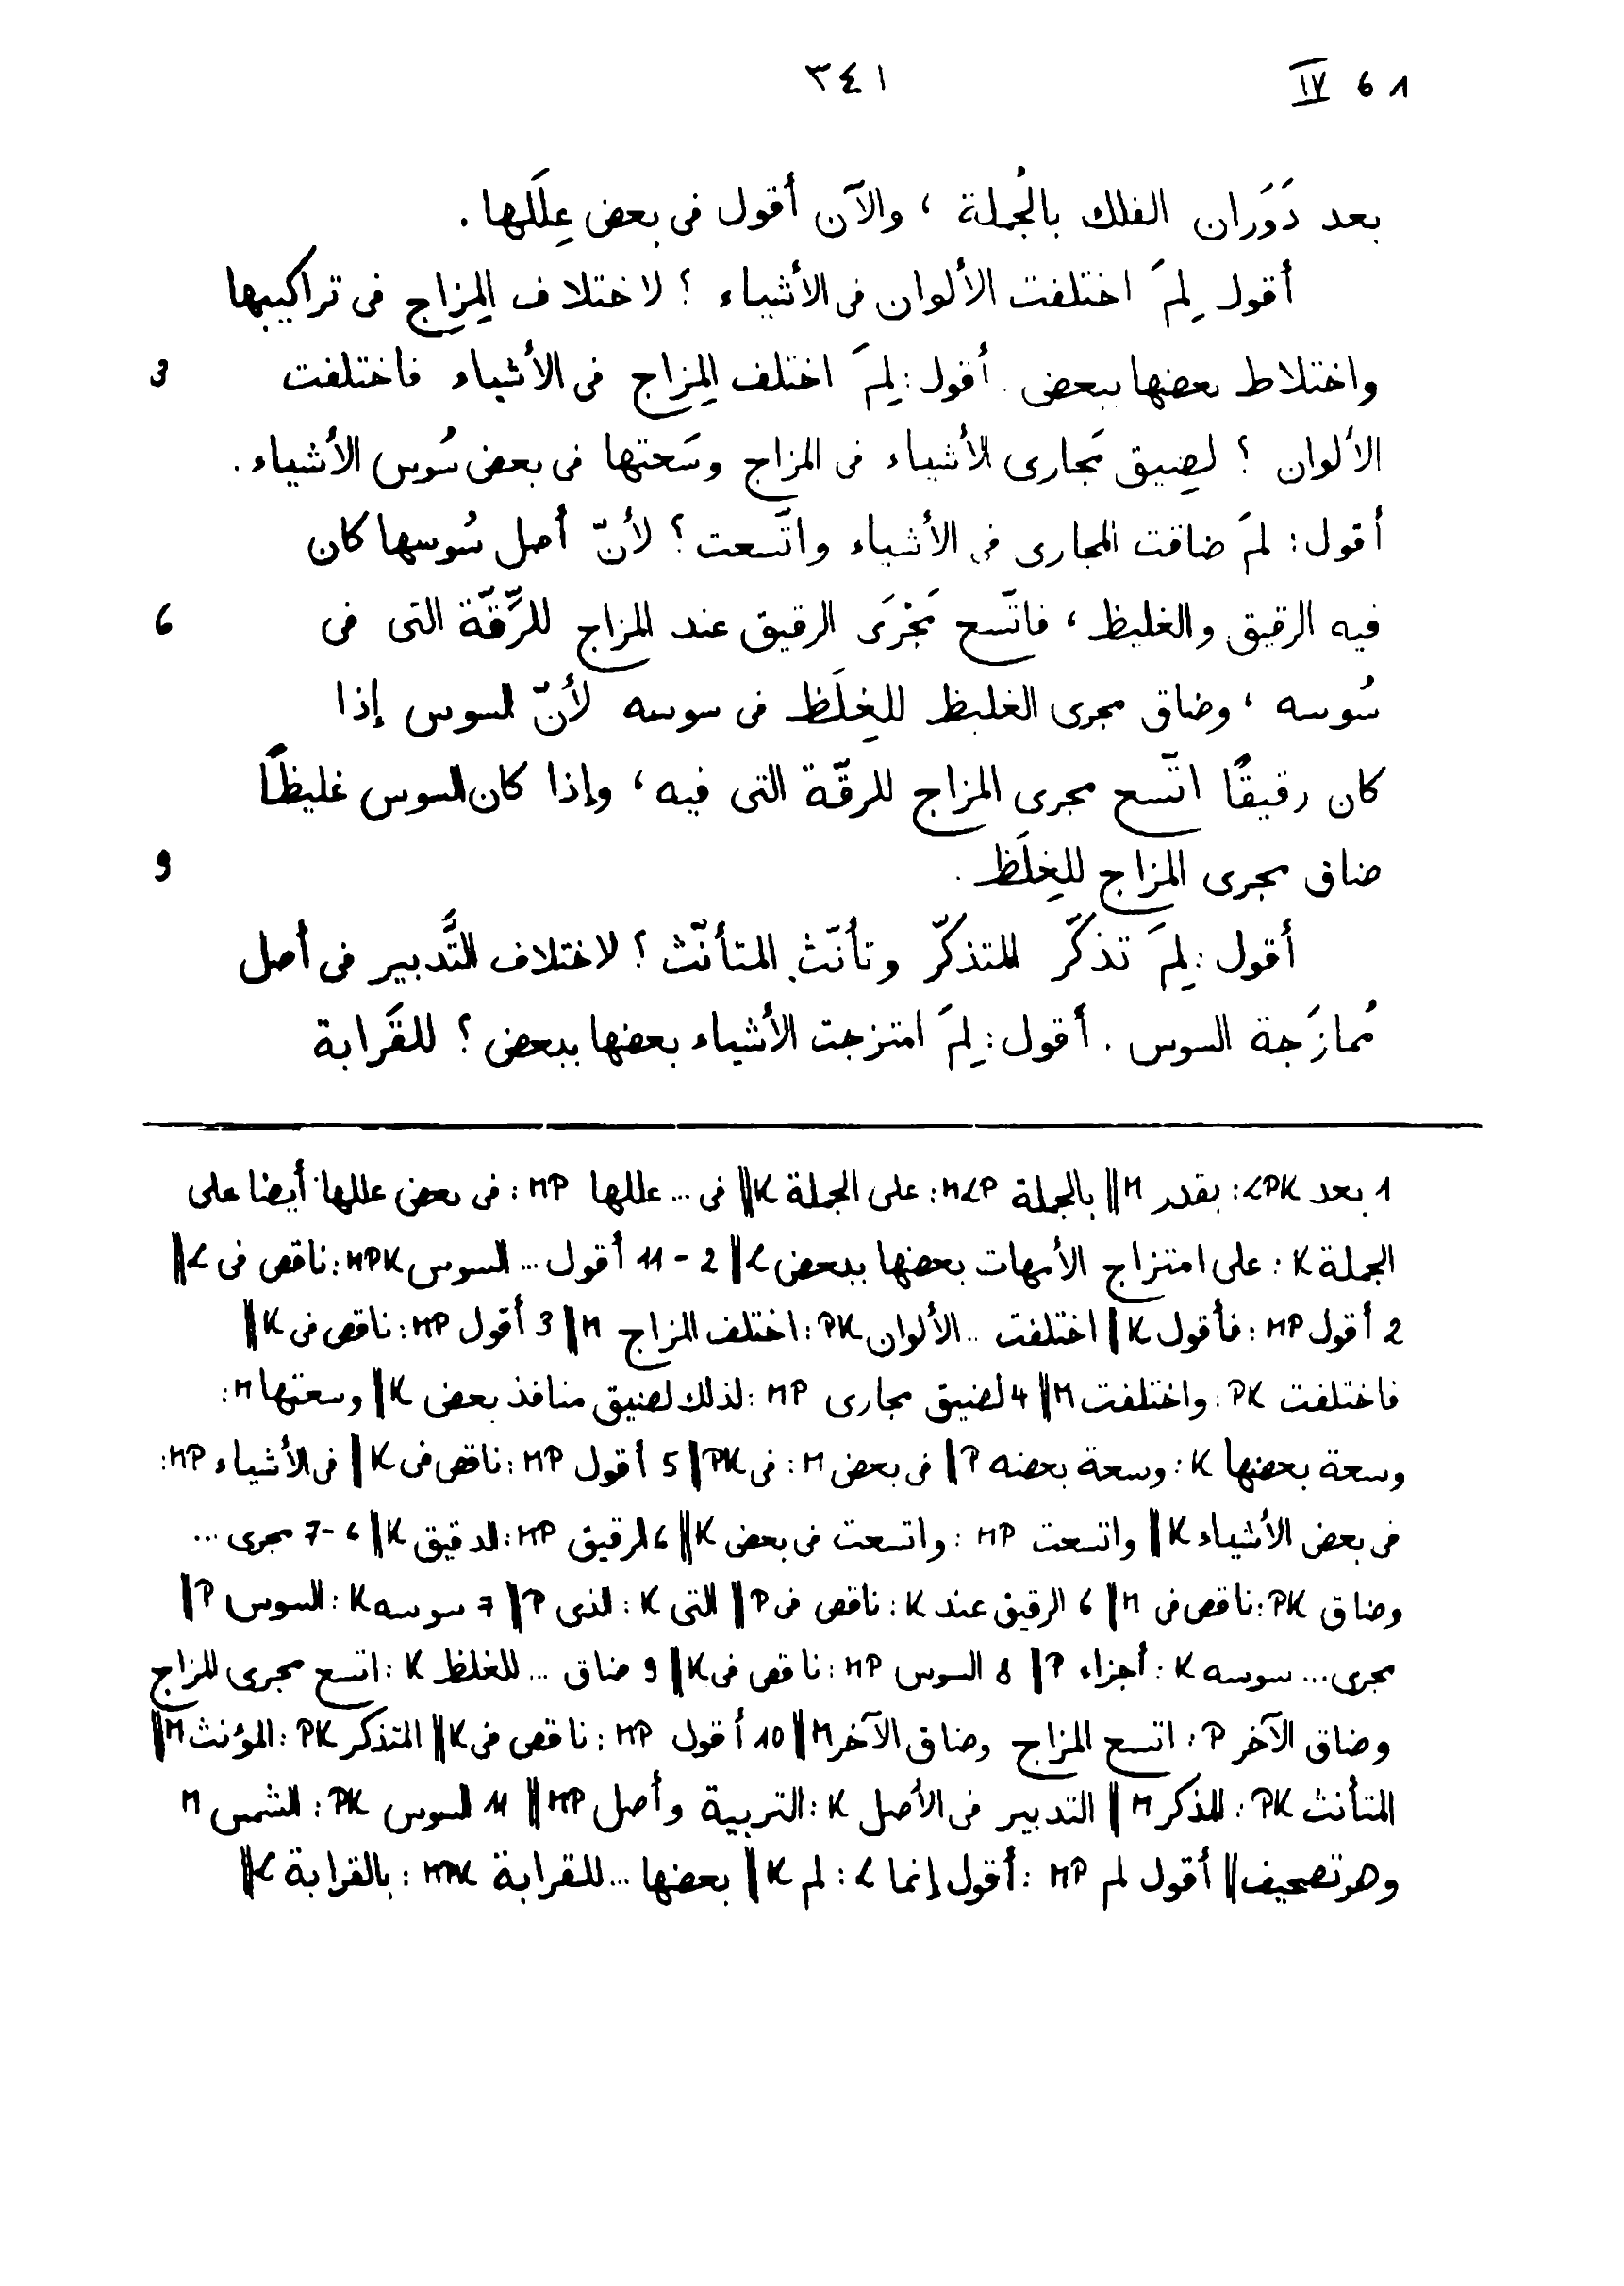 ٣٤١ IV 6 1
بعد دَوَران الفلك بالجُملة ، والآن أقول فى بعض عِلَلها .
أقول لِمَ اختلفت الألوان فى الأشياء ؟ لاختلاف المِزاج فى تراكيبها
واختلاط بعضها ببعض . أقول : لِمَ اختلف المِزاج فى الأشياء فاختلفت 3
الألوان ؟ لضِيق مَجارى الأشياء فى المزاج وسَعتها فى بعض سُوس الأشياء .
أقول : لمَ ضاقت المجارى فى الأشياء واتّسعت ؟ لأنّ أصل سُوسها كان
فيه الرقيق والغليظ ، فاتّسع مَجْرَى الرقيق عند المزاج للرِّقّة التى فى 6
سُوسه ، وضاق مجرى الغليظ للغِلَظ فى سوسه لأنّ السوس إذا
كان رقيقًا اتّسع مجرى المزاج للرقّة التى فيه ، وإذا كان السوس غليظًا
ضاق مجرى المزاج للغِلَظ . 9
أقول : لِمَ تذكّر المتذكّر وتأنّث المتأنّث ؟ لاختلاف التَّدبير فى أصل
مُمازَجة السوس . أقول : لِمَ امتزجت الأشياء بعضها ببعض ؟ للقَرابة
1 بعد LPK : بقدر M || بالجملة MLP : على الجملة K || فى ... عللها MP : فى بعض عللها أيضا على
الجملة K : على امتزاج الأمهات بعضها ببعض L || 2 - 11 أقول ... السوس MPK : ناقص فى L ||
2 أقول MP : فأقول K || اختلفت .. الألوان PK : اختلف المزاج M || 3 أقول MP : ناقص فى K ||
فاختلفت PK : واختلفت M || 4 لضيق مجارى MP : لذلك لضيق منافذ بعض K || وسعتها M :
وسعة بعضها K : وسعة بعضه P || فى بعض M : فى PK || 5 أقول MP : ناقص فى K || فى الأشياء MP :
فى بعض الأشياء K || واتسعت MP : واتسعت فى بعض K || 6 الرقيق MP : الدقيق K || 6 - 7 مجرى ...
وضاق PK : ناقص فى M || 6 الرقيق عند K : ناقص فى P || التى K : الذى P || 7 سوسه K : السوس P ||
مجرى ... سوسه K : أجزاء P || 8 السوس MP : ناقص فى K || 9 ضاق ... للغلظ K : اتسع مجرى المزاج
وضاق الآخر P : اتسع المزاج وضاق الآخر M || 10 أقول MP : ناقص فى K || المتذكر PK : المؤنث M ||
المتأنث PK : المذكر M || التدبير فى الأصل K : التربية وأصل MP || 11 السوس PK : الشمس M
وهو تصحيف || أقول لم MP : أقول إنما L : لم K || بعضها ... للقرابة MPK : بالقرابة L ||